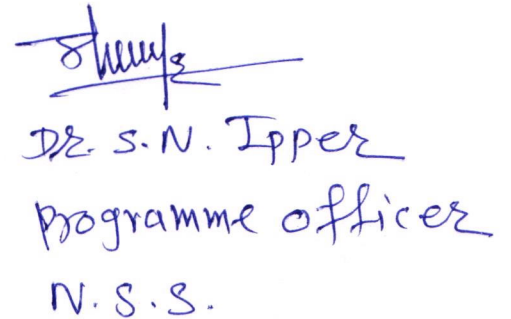 Dr. S. N. Ipper
Programme officer
N. S. S.